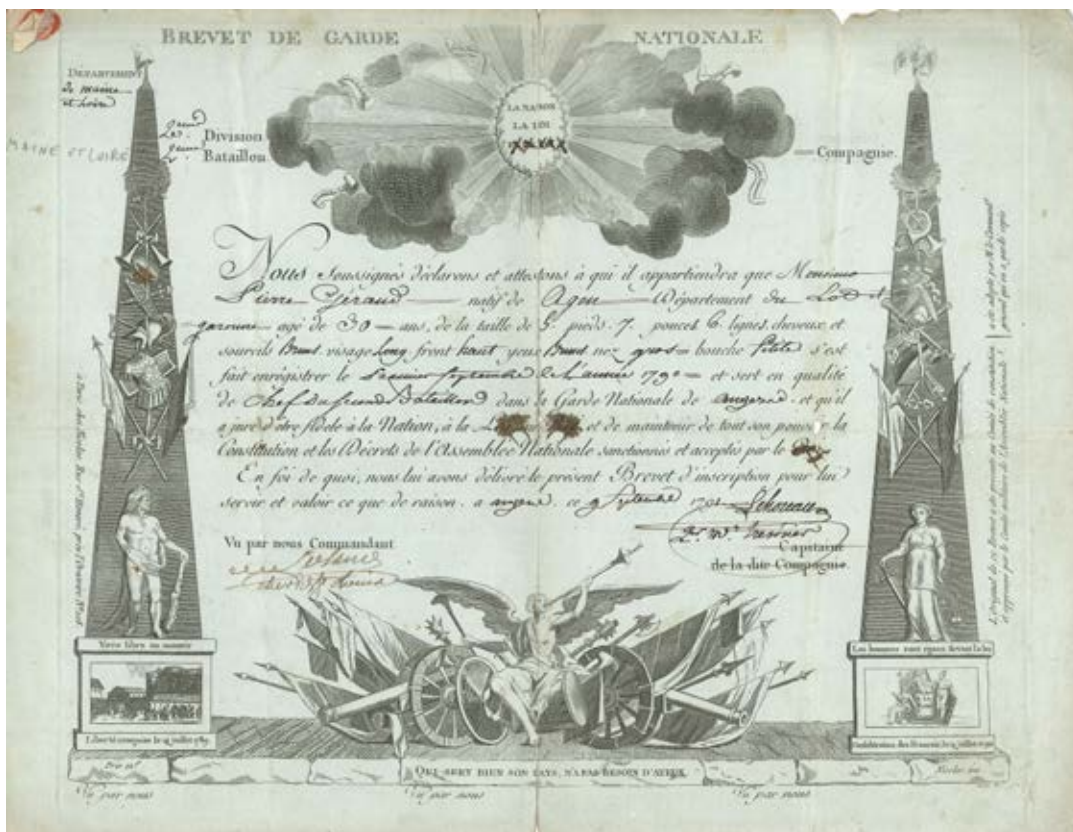 BREVET DE GARDE NATIONALE
DEPARTEMENT
de maine
et Loire
MAINE ET LOIRE
Division
Bataillon
Compagnie.
LA NATION
LA LOI
Nous Soussignés déclarons et attestons à qui il appartiendra que Monsieur
Pierre Géraud natif de Agen Département du Lot et
garonne agé de 30 ans, de la taille de 5. pieds. 7. pouces 6. lignes, cheveux et
sourcils Bruns visage Long front haut yeux Bruns nez gros bouche Petite s'est
fait enrégistrer le septembre de l'année 1790 et sert en qualité
de Chef du second Bataillon dans la Garde Nationale de et qu'il
a juré d'être fidele à la Nation, à la et de maintenir de tout son pouvoir la
Constitution et les Décrets de l'Assemblée Nationale sanctionnés et acceptés par le
En foi de quoi, nous lui avons délivré le présent Brevet d'inscription pour lui
servir et valoir ce que de raison. a ce 9 Septembre
Vu par nous Commandant
Capitaine
de la dite Compagnie.
Vivre libre ou mourir
Liberté conquise le 14 juillet 1789.
Les hommes sont égaux devant la loi
QUI SERT BIEN SON PAYS, N'A PAS BESOIN D'AYEUX.
Vu par nous
Vu par nous
Vu par nous